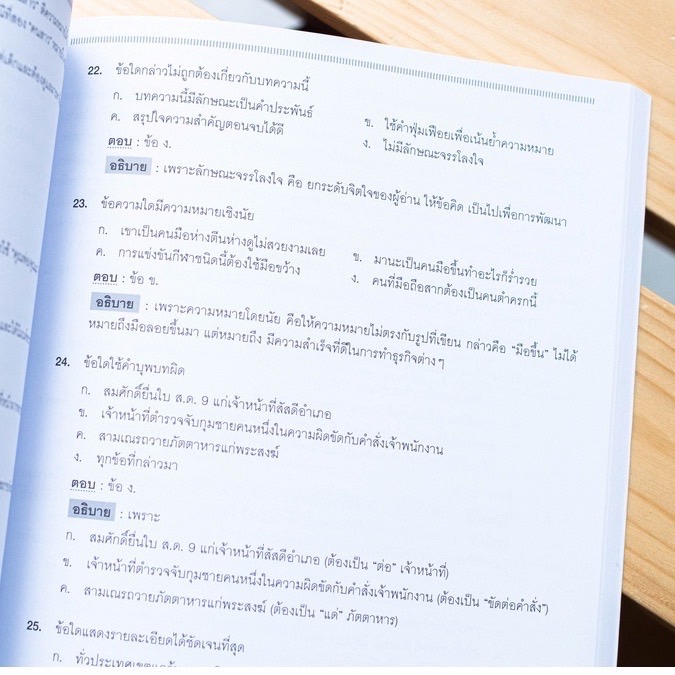 22. ข้อใดกล่าวไม่ถูกต้องเกี่ยวกับบทความนี้
ก. บทความนี้มีลักษณะเป็นคำประพันธ์
ข. ใช้คำฟุ่มเฟือยเพื่อเน้นย้ำความหมาย
ค. สรุปใจความสำคัญตอนจบได้ดี
ง. ไม่มีลักษณะจรรโลงใจ
ตอบ : ข้อ ง.
อธิบาย : เพราะลักษณะจรรโลงใจ คือ ยกระดับจิตใจของผู้อ่าน ให้ข้อคิด เป็นไปเพื่อการพัฒนา
23. ข้อความใดมีความหมายเชิงนัย
ก. เขาเป็นคนมือห่างตีนห่างดูไม่สวยงามเลย
ข. มานะเป็นคนมือขึ้นทำอะไรก็ร่ำรวย
ค. การแข่งขันกีฬาชนิดนี้ต้องใช้มือขว้าง
ง. คนที่มือถือสากต้องเป็นคนตำครกนี้
ตอบ : ข้อ ข.
อธิบาย : เพราะความหมายโดยนัย คือให้ความหมายไม่ตรงกับรูปที่เขียน กล่าวคือ "มือขึ้น" ไม่ได้
หมายถึงมือลอยขึ้นมา แต่หมายถึง มีความสำเร็จที่ดีในการทำธุรกิจต่างๆ
24. ข้อใดใช้คำบุพบทผิด
ก. สมศักดิ์ยื่นใบ ส.ด. 9 แก่เจ้าหน้าที่สัสดีอำเภอ
ข. เจ้าหน้าที่ตำรวจจับกุมชายคนหนึ่งในความผิดขัดกับคำสั่งเจ้าพนักงาน
ค. สามเณรถวายภัตตาหารแก่พระสงฆ์
ง. ทุกข้อที่กล่าวมา
ตอบ : ข้อ ง.
อธิบาย : เพราะ
ก. สมศักดิ์ยื่นใบ ส.ด. 9 แก่เจ้าหน้าที่สัสดีอำเภอ (ต้องเป็น "ต่อ" เจ้าหน้าที่)
ข. เจ้าหน้าที่ตำรวจจับกุมชายคนหนึ่งในความผิดขัดกับคำสั่งเจ้าพนักงาน (ต้องเป็น "ขัดต่อคำสั่ง")
ค. สามเณรถวายภัตตาหารแก่พระสงฆ์ (ต้องเป็น "แด่" ภัตตาหาร)
25. ข้อใดแสดงรายละเอียดได้ชัดเจนที่สุด
ก. ทั่วประเทศเขต